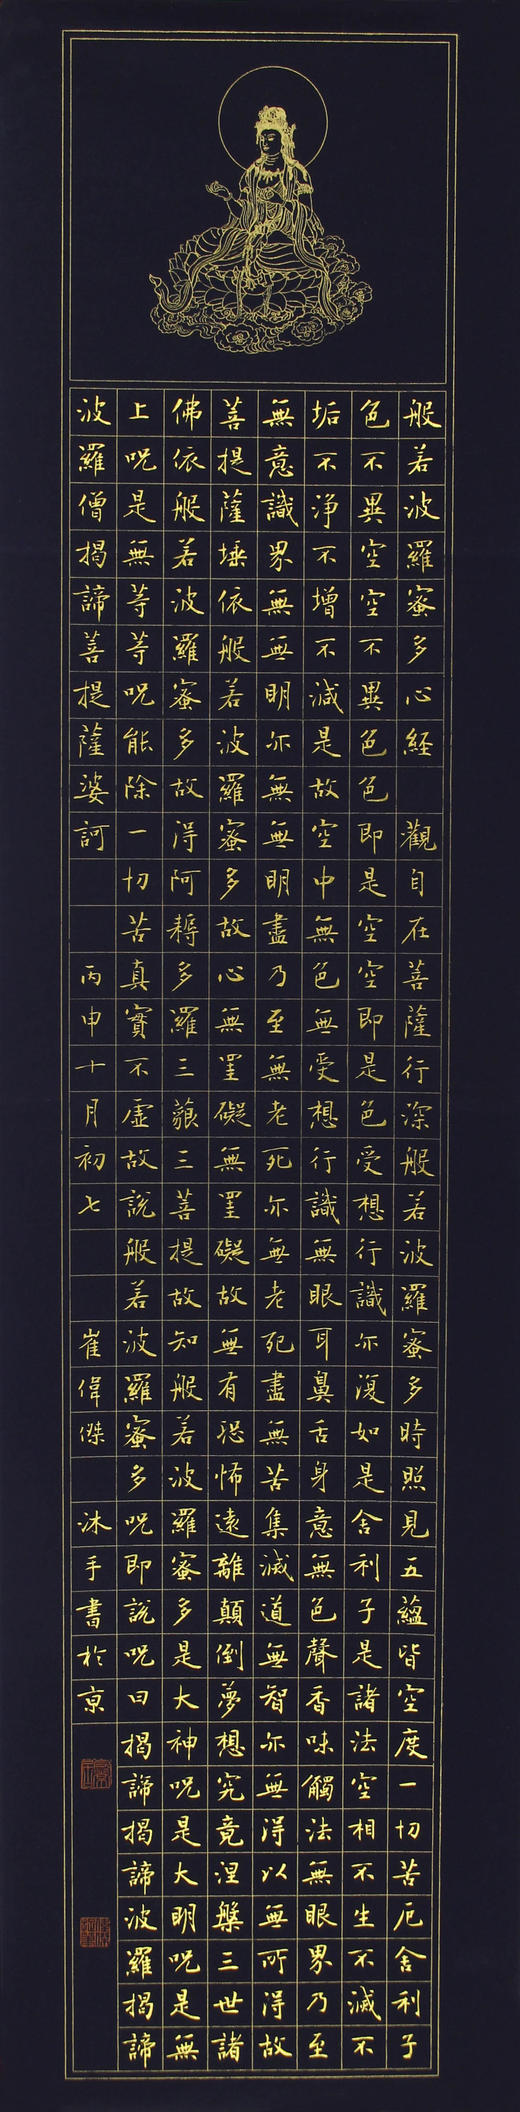 般若波羅蜜多心経 觀自在菩薩行深般若波羅蜜多時照見五蘊皆空度一切苦厄舍利子
色不異空空不異色色即是空空即是色受想行識亦復如是舍利子是諸法空相不生不滅不
垢不淨不增不減是故空中無色無受想行識無眼耳鼻舌身意無色聲香味觸法無眼界乃至
無意識界無無明亦無無明盡乃至無老死亦無老死盡無苦集滅道無智亦無得以無所得故
菩提薩埵依般若波羅蜜多故心無罣礙無罣礙故無有恐怖遠離顛倒夢想究竟涅槃三世諸
佛依般若波羅蜜多故得阿耨多羅三藐三菩提故知般若波羅蜜多是大神呪是大明呪是無
上呪是無等等呪能除一切苦真實不虛故說般若波羅蜜多呪即說呪曰揭諦揭諦波羅揭諦
波羅僧揭諦菩提薩婆訶 丙申十月初七 崔偉傑 沐手書於京